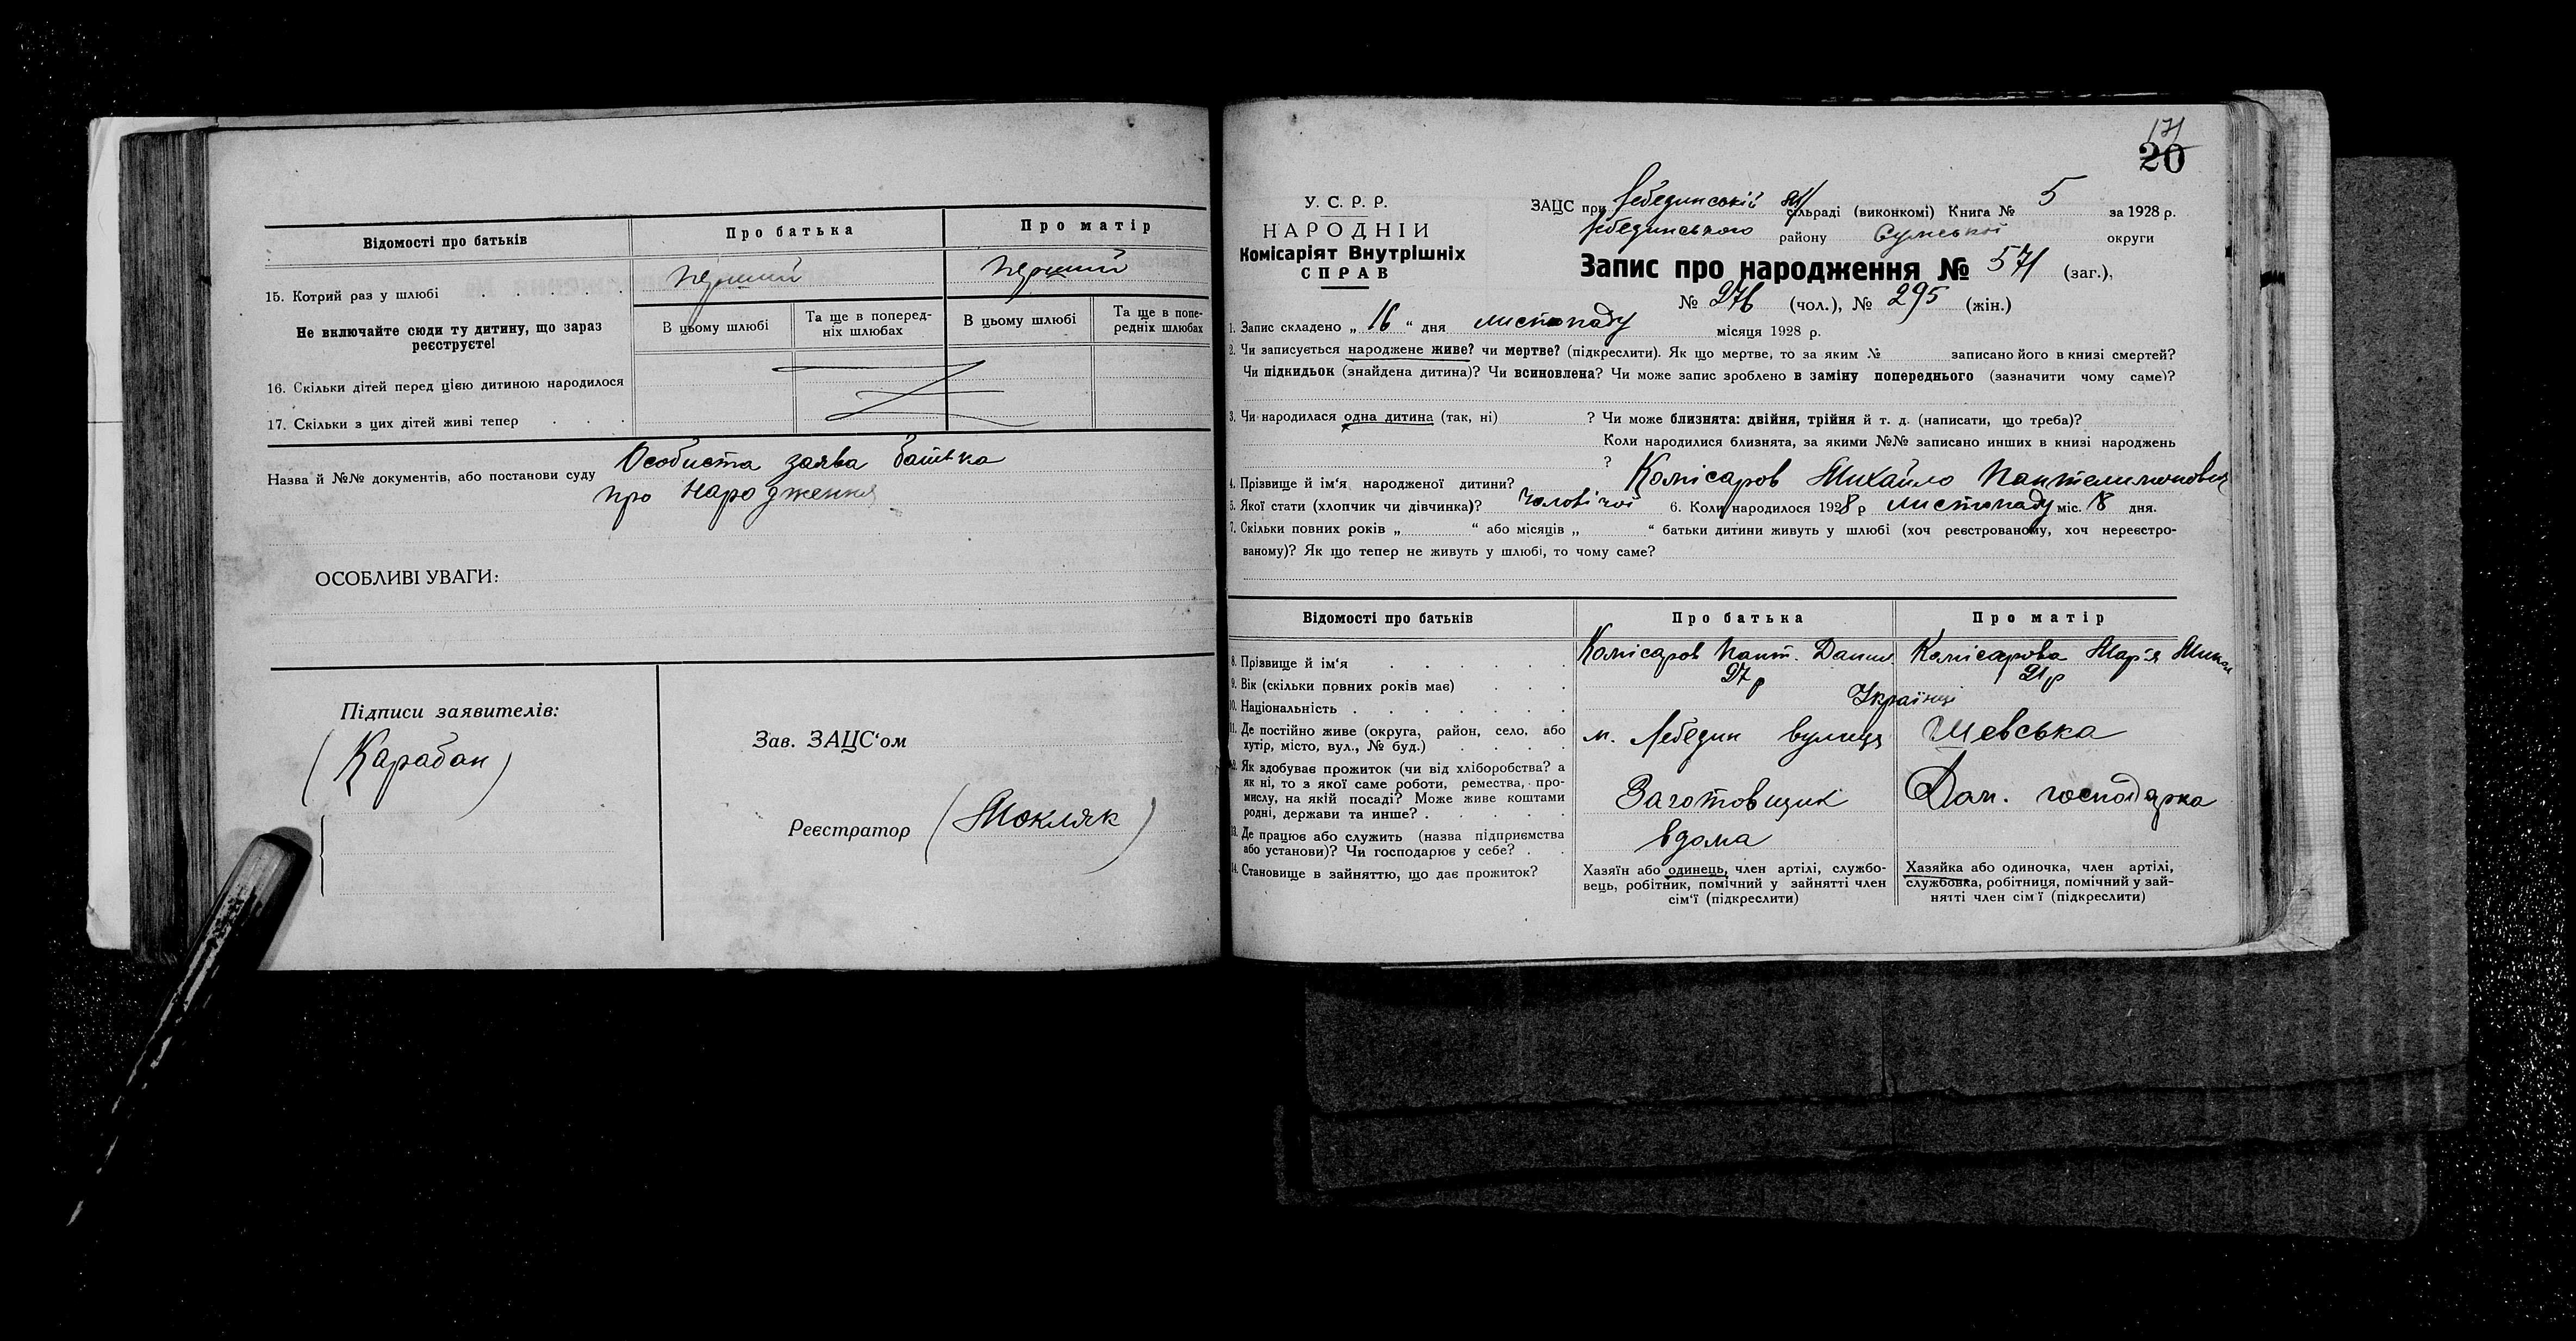 Відомості про батьків
Про батька
Про матір
15. Котрий раз у шлюбі . . . . .
перший
перший
Не включайте сюди ту дитину, що зараз реєструєте!
В цьому шлюбі
Та ще в попередніх шлюбах
В цьому шлюбі
Та ще в попередніх шлюбах
16. Скільки дітей перед цією дитиною народилося
17. Скільки з цих дітей живі тепер . . .
Назва й №№ документів, або постанови суду Особиста заява батька
про народження
ОСОБЛИВІ УВАГИ:
Підписи заявителів:
(Карабан)
Зав. ЗАЦС'ом
Реєстратор (Мокляк)
171
20
У. С. Р. Р.
НАРОДНІЙ
Комісаріят Внутрішніх
СПРАВ
ЗАЦС при Лебединській сільраді (виконкомі) Книга № 5 за 1928 р.
Лебединського району Сумської округи
Запис про народження № 571 (заг.),
№ 276 (чол.), № 295 (жін.)
1. Запис складено „ 16 “ дня листопаду місяця 1928 р.
2. Чи записується народжене живе? чи мертве? (підкреслити). Як що мертве, то за яким № записано його в книзі смертей?
Чи підкидьок (знайдена дитина)? Чи всиновлена? Чи може запис зроблено в заміну попереднього (зазначити чому саме)?
3. Чи народилася одна дитина (так, ні) ? Чи може близнята: двійня, трійня й т. д. (написати, що треба)?
Коли народилися близнята, за якими №№ записано инших в книзі народжень
?
4. Прізвище й ім‘я народженої дитини? Комісаров Михайло Пантелимонович
5. Якої стати (хлопчик чи дівчинка)? чоловічої 6. Коли народилося 1928 р листопаду міс. 8 дня.
7. Скільки повних років „ “ або місяців „ “ батьки дитини живуть у шлюбі (хоч реєстрованому, хоч нереєстро-
ваному)? Як що тепер не живуть у шлюбі, то чому саме?
Відомості про батьків
Про батька
Про матір
8. Прізвище й ім‘я . . . . . .
Комісаров Пант. Данил.
Комісарова Мар'я Микол
9. Вік (скільки повних років має) . . .
27 р
21 р
10. Національність . . . . . . .
Українці
11. Де постійно живе (округа, район, село, або
хутір, місто, вул., № буд.) . . . .
м. Лебедин вулиця Шевська
12. Як здобуває прожиток (чи від хліборобства? а
як ні, то з якої саме роботи, ремества, про-
мислу, на якій посаді? Може живе коштами
родні, держави та инше? . . . . .
Заготовщик
Дом. господарка
13. Де працює або служить (назва підприємства
або установи)? Чи господарює у себе? . .
вдома
14. Становище в зайняттю, що дає прожиток?
Хазяїн або одинець, член артілі, службо-
вець, робітник, помічний у зайнятті член
сім‘ї (підкреслити)
Хазяйка або одиночка, член артілі,
службовка, робітниця, помічний у зай-
нятті член сім‘ї (підкреслити)